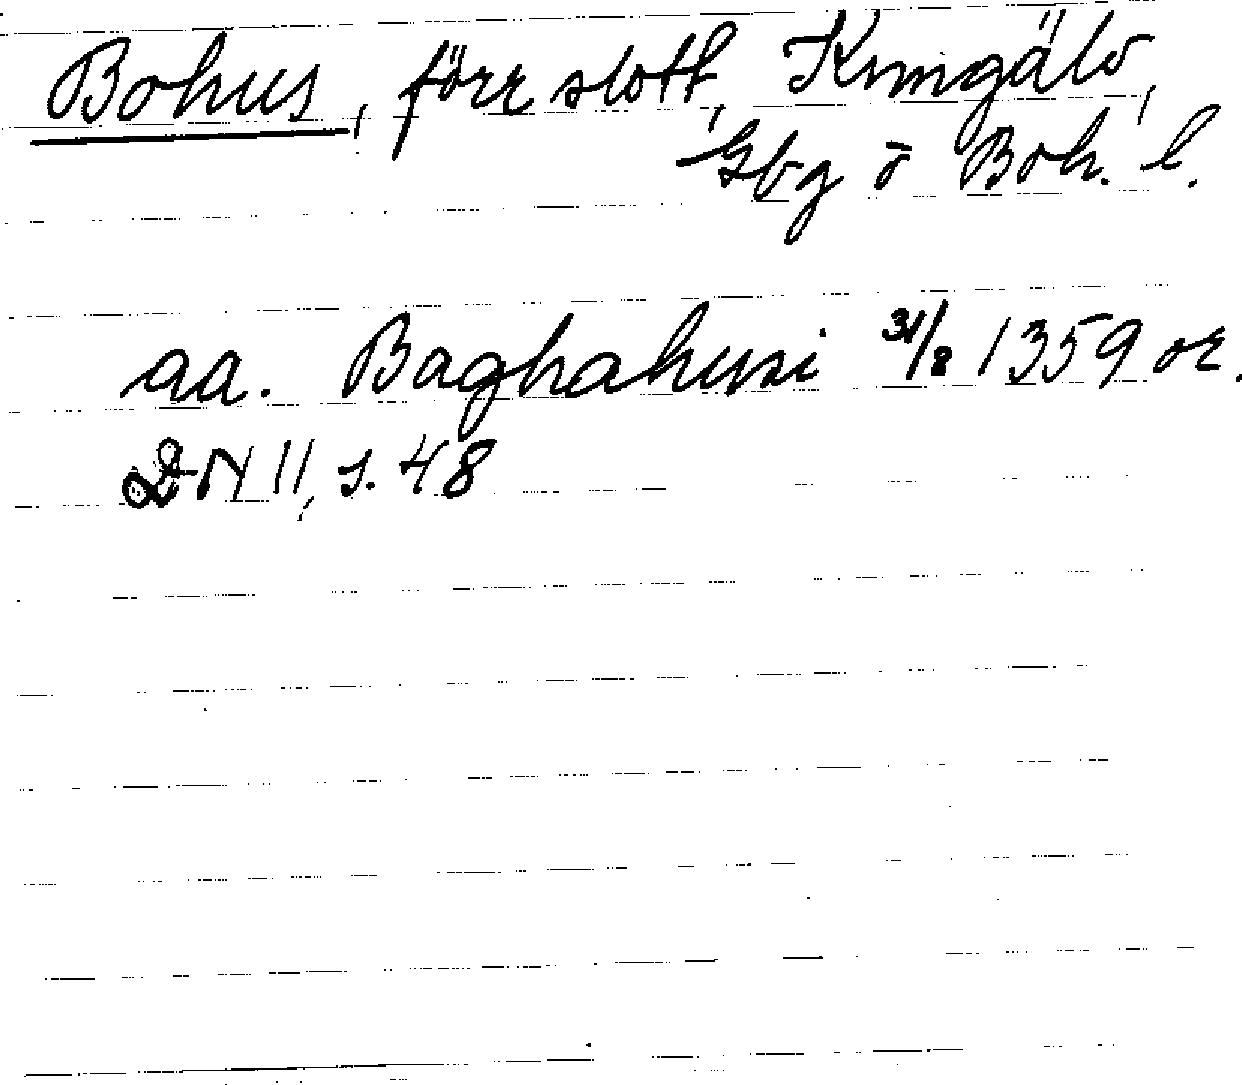 Bohus, förr slott, Kungälv,
Gbg o Boh. l.
aa. Baghahusi 31/8 1359 or.
DN II, s. 48